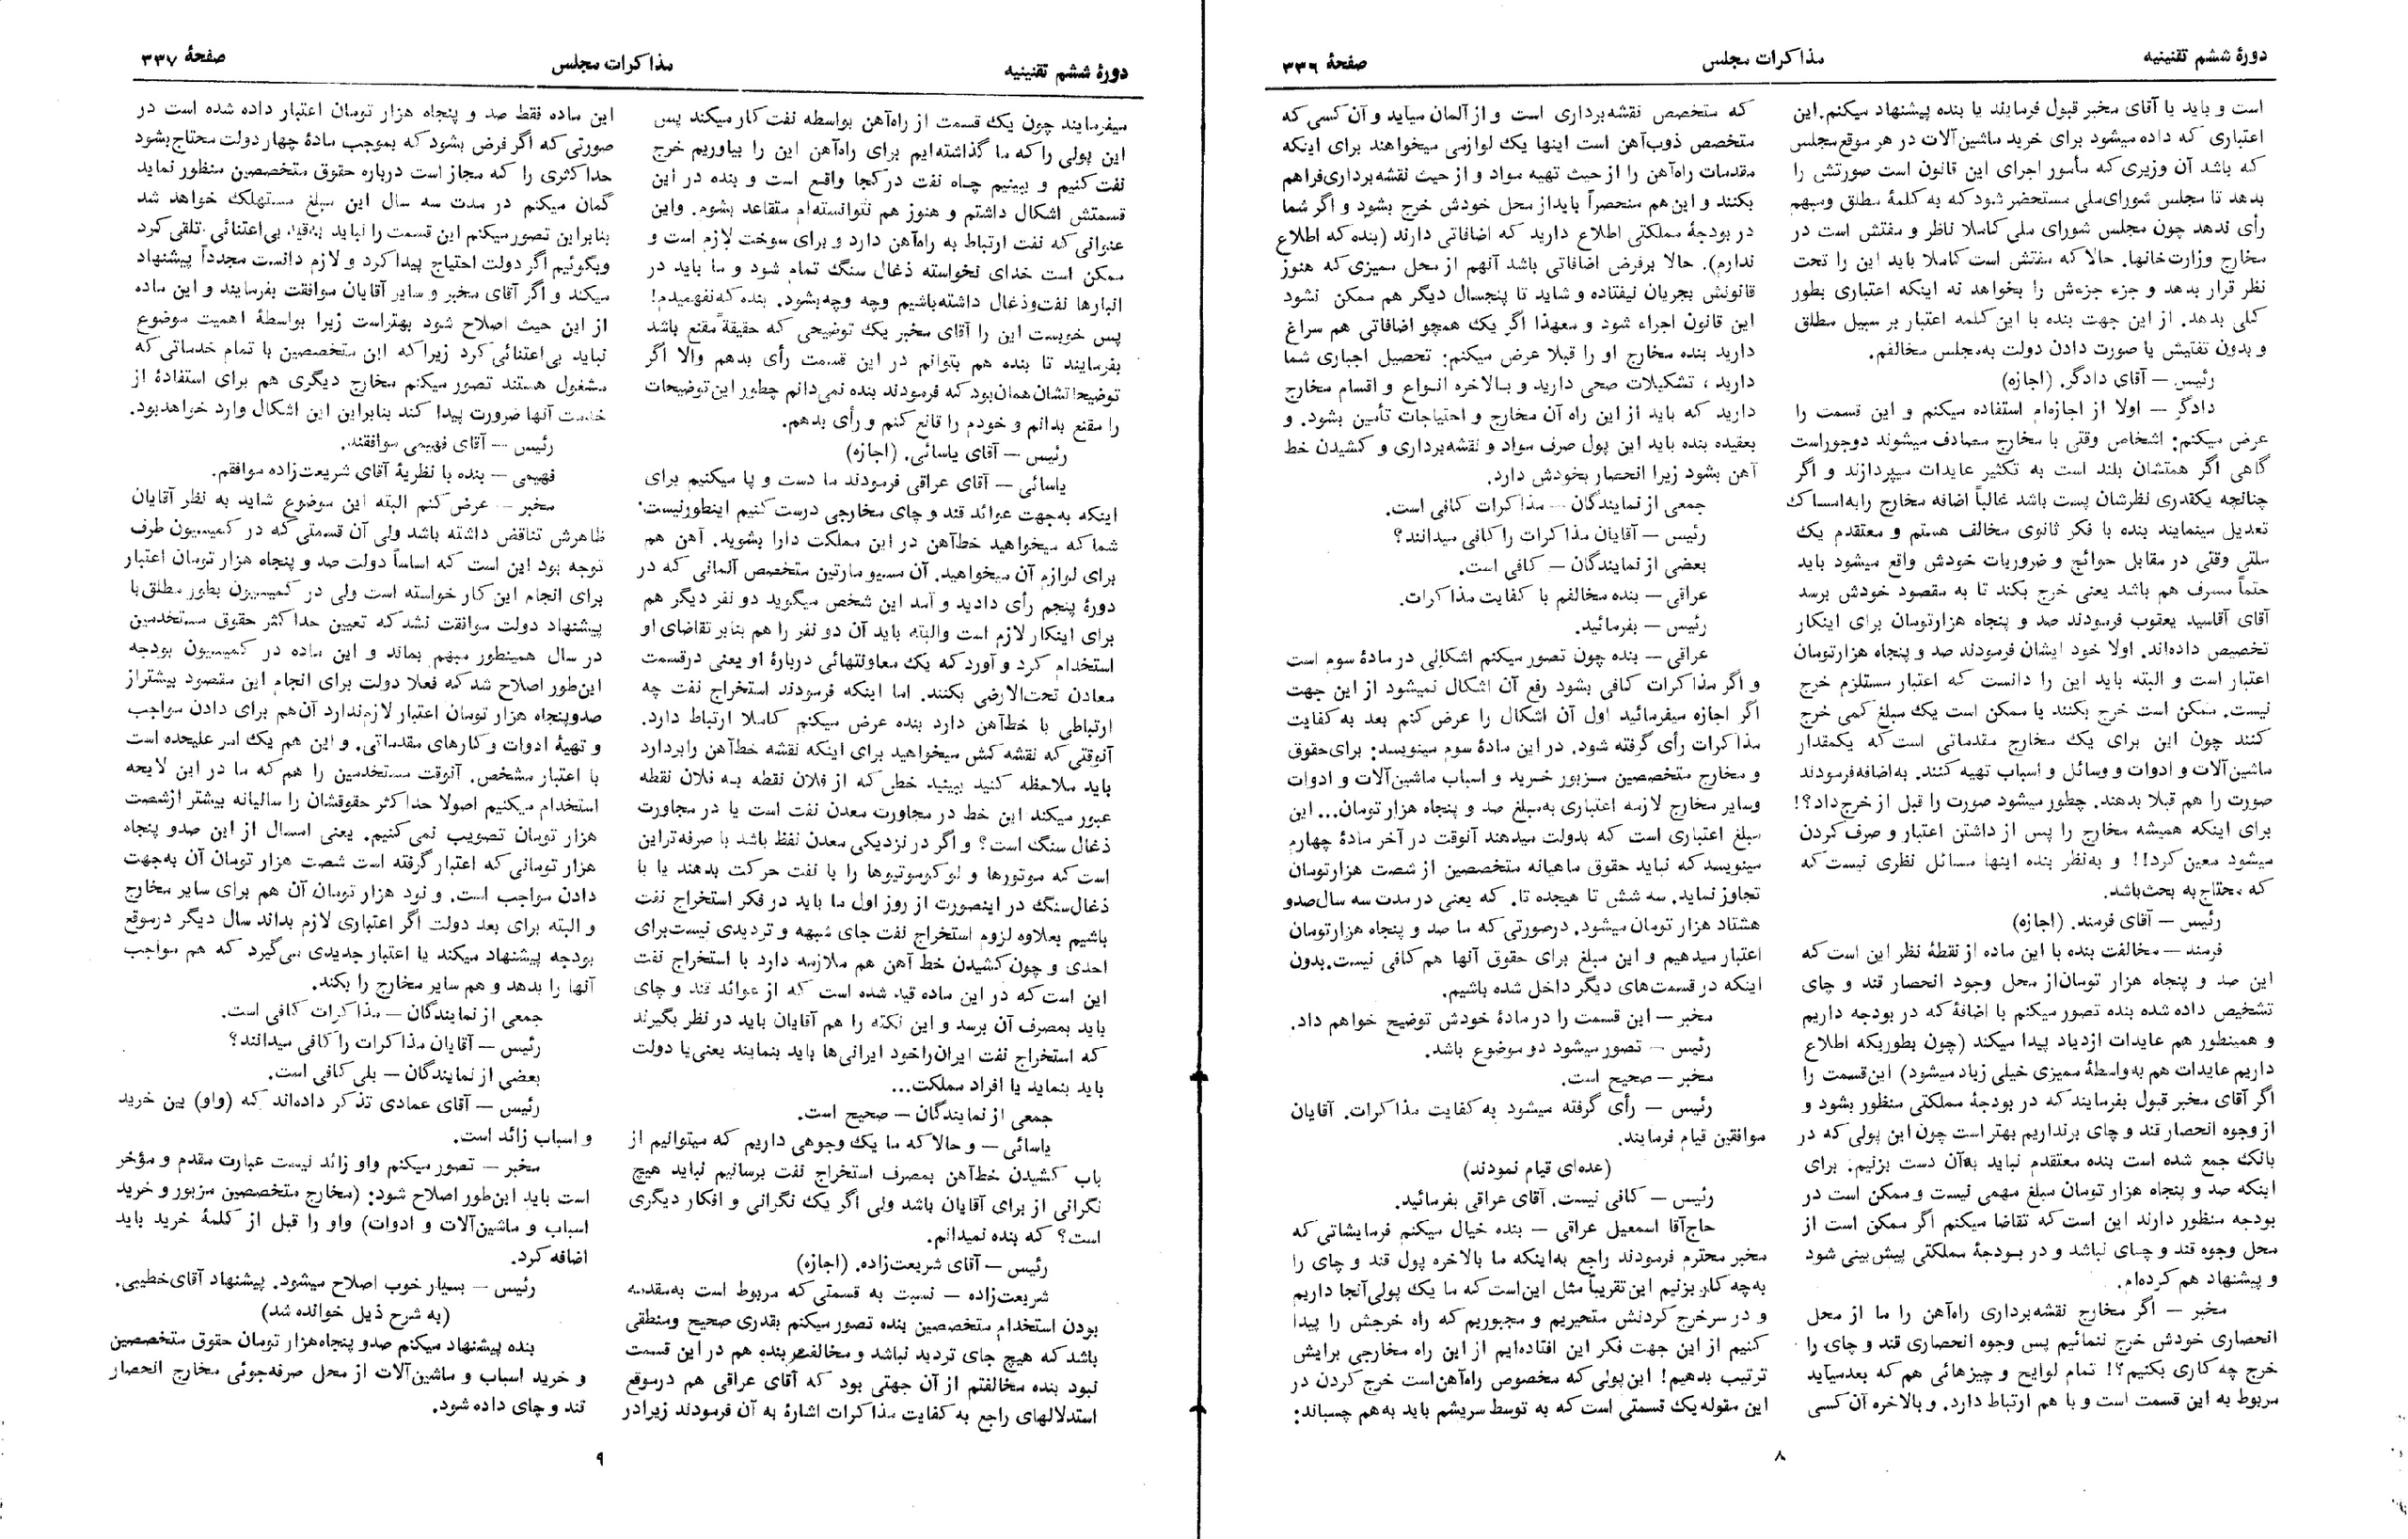 دورهٔ ششم تقنینیه
مذاکرات مجلس
صفحهٔ ۳۳۶
است و باید یا آقای مخبر قبول فرمایند یا بنده پیشنهاد میکنم. این
اعتباری که داده میشود برای خرید ماشین‌آلات در هر موقع مجلس
که باشد آن وزیری که مأمور اجرای این قانون است صورتش را
بدهد تا مجلس شورای‌ملی مستحضر شود که به کلمهٔ مطلق ومبهم
رأی ندهد چون مجلس شورای ملی کاملا ناظر و مفتش است در
مخارج وزارت‌خانها. حالا که مفتش است کاملا باید این را تحت
نظر قرار بدهد و جزء جزءش را بخواهد نه اینکه اعتباری بطور
کلی بدهد. از این جهت بنده با این کلمه اعتبار بر سبیل مطلق
و بدون تفتیش یا صورت دادن دولت به‌مجلس مخالفم.
رئیس — آقای دادگر. (اجازه)
دادگر — اولا از اجازه‌ام استفاده میکنم و این قسمت را
عرض میکنم: اشخاص وقتی با مخارج مصادف میشوند دوجوراست
گاهی اگر همتشان بلند است به تکثیر عایدات میپردازند و اگر
چنانچه یکقدری نظرشان پست باشد غالباً اضافه مخارج رابه‌امساک
تعدیل مینمایند بنده با فکر ثانوی مخالف هستم و معتقدم یک
ملتی وقتی در مقابل حوائج و ضروریات خودش واقع میشود باید
حتماً مسرف هم باشد یعنی خرج بکند تا به مقصود خودش برسد
آقای آقاسید یعقوب فرمودند صد و پنجاه هزارتومان برای اینکار
تخصیص داده‌اند. اولا خود ایشان فرمودند صد و پنجاه هزارتومان
اعتبار است و البته باید این را دانست که اعتبار مستلزم خرج
نیست. ممکن است خرج بکنند یا ممکن است یک مبلغ کمی خرج
کنند چون این برای یک مخارج مقدماتی است که یکمقدار
ماشین‌آلات و ادوات و وسائل و اسباب تهیه کنند. به‌اضافه‌فرمودند
صورت را هم قبلا بدهند. چطور میشود صورت را قبل از خرج‌داد؟!
برای اینکه همیشه مخارج را پس از داشتن اعتبار و صرف کردن
میشود معین کرد!! و به‌نظر بنده اینها مسائل نظری نیست که
که محتاج به بحث‌باشد.
رئیس — آقای فرمند. (اجازه)
فرمند — مخالفت بنده با این ماده از نقطهٔ نظر این است که
این صد و پنجاه هزار تومان‌از محل وجود انحصار قند و چای
تشخیص داده شده بنده تصور میکنم با اضافهٔ که در بودجه داریم
و همینطور هم عایدات ازدیاد پیدا میکند (چون بطوریکه اطلاع
داریم عایدات هم به‌واسطهٔ ممیزی خیلی زیاد میشود) این‌قسمت را
اگر آقای مخبر قبول بفرمایند که در بودجهٔ مملکتی منظور بشود و
از وجوه انحصار قند و چای برنداریم بهتر است چون این پولی که در
بانک جمع شده است بنده معتقدم نباید به‌آن دست بزنیم: برای
اینکه صد و پنجاه هزار تومان مبلغ مهمی نیست و ممکن است در
بودجه منظور دارند این است که تقاضا میکنم اگر ممکن است از
محل وجوه قند و چای نباشد و در بودجهٔ مملکتی پیش‌بینی شود
و پیشنهاد هم کرده‌ام.
مخبر — اگر مخارج نقشه‌برداری راه‌آهن را ما از محل
انحصاری خودش خرج ننمائیم پس وجوه انحصاری قند و چای را
خرج چه کاری بکنیم؟! تمام لوایح و چیزهائی هم که بعدمیآید
مربوط به این قسمت است و با هم ارتباط دارد. و بالاخره آن کسی
که متخصص نقشه‌برداری است و از آلمان میآید و آن کسی که
متخصص ذوب‌آهن است اینها یک لوازمی میخواهند برای اینکه
مقدمات راه‌آهن را از حیث تهیه مواد و از حیث نقشه‌برداری‌فراهم
بکنند و این هم منحصراً بایداز محل خودش خرج بشود و اگر شما
در بودجهٔ مملکتی اطلاع دارید که اضافاتی دارند (بنده که اطلاع
ندارم). حالا برفرض اضافاتی باشد آنهم از محل ممیزی که هنوز
قانونش بجریان نیفتاده و شاید تا پنجسال دیگر هم ممکن نشود
این قانون اجراء شود و معهذا اگر یک همچو اضافاتی هم سراغ
دارید بنده مخارج او را قبلا عرض میکنم: تحصیل اجباری شما
دارید ، تشکیلات صحی دارید و بالاخره انواع و اقسام مخارج
دارید که باید از این راه آن مخارج و احتیاجات تأمین بشود. و
بعقیده بنده باید این پول صرف مواد و نقشه‌برداری و کشیدن خط
آهن بشود زیرا انحصار بخودش دارد.
جمعی از نمایندگان — مذاکرات کافی است.
رئیس — آقایان مذاکرات را کافی میدانند؟
بعضی از نمایندگان — کافی است.
عراقی — بنده مخالفم با کفایت مذاکرات.
رئیس — بفرمائید.
عراقی — بنده چون تصور میکنم اشکالی در مادهٔ سوم است
و اگر مذاکرات کافی بشود رفع آن اشکال نمیشود از این جهت
اگر اجازه میفرمائید اول آن اشکال را عرض کنم بعد به کفایت
مذاکرات رأی گرفته شود. در این مادهٔ سوم مینویسد: برای‌حقوق
و مخارج متخصصین مزبور خرید و اسباب ماشین‌آلات و ادوات
وسایر مخارج لازمه اعتباری به‌مبلغ صد و پنجاه هزار تومان... این
مبلغ اعتباری است که بدولت میدهند آنوقت در آخر مادهٔ چهارم
مینویسد که نباید حقوق ماهیانه متخصصین از شصت هزارتومان
تجاوز نماید. سه شش تا هیجده تا. که یعنی در مدت سه سال‌صدو
هشتاد هزار تومان میشود. درصورتی که ما صد و پنجاه هزارتومان
اعتبار میدهیم و این مبلغ برای حقوق آنها هم کافی نیست.بدون
اینکه در قسمت‌های دیگر داخل شده باشیم.
مخبر — این قسمت را در مادهٔ خودش توضیح خواهم داد.
رئیس — تصور میشود دو موضوع باشد.
مخبر — صحیح است.
رئیس — رأی گرفته میشود به کفایت مذاکرات. آقایان
موافقین قیام فرمایند.
(عده‌ای قیام نمودند)
رئیس — کافی نیست. آقای عراقی بفرمائید.
حاج‌آقا اسمعیل عراقی — بنده خیال میکنم فرمایشاتی که
مخبر محترم فرمودند راجع به‌اینکه ما بالاخره پول قند و چای را
به‌چه کار بزنیم این تقریباً مثل این‌است که ما یک پولی آنجا داریم
و در سرخرج کردنش متحیریم و مجبوریم که راه خرجش را پیدا
کنیم از این جهت فکر این افتاده‌ایم از این راه مخارجی برایش
ترتیب بدهیم! این‌پولی که مخصوص راه‌آهن‌است خرج کردن در
این مقوله یک قسمتی است که به توسط سریشم باید به‌هم چسباند:
۸
دورهٔ ششم تقنینیه
مذاکرات مجلس
صفحهٔ ۳۳۷
میفرمایند چون یک قسمت از راه‌آهن بواسطه نفت کار میکند پس
این پولی را که ما گذاشته‌ایم برای راه‌آهن این را بیاوریم خرج
نفت کنیم و ببینیم چاه نفت در کجا واقع است و بنده در این
قسمتش اشکال داشتم و هنوز هم نتوانسته‌ام متقاعد بشوم. واین
عنوانی که نفت ارتباط به راه‌آهن دارد و برای سوخت لازم است و
ممکن است خدای نخواسته ذغال سنگ تمام شود و ما باید در
انبارها نفت‌وذغال داشته‌باشیم وچه وچه‌بشود. بنده که‌نفهمیدم!
پس خوبست این را آقای مخبر یک توضیحی که حقیقةً مقنع باشد
بفرمایند تا بنده هم بتوانم در این قسمت رأی بدهم والا اگر
توضیحاتشان همان‌بود که فرمودند بنده نمی‌دانم چطور این‌توضیحات
را مقنع بدانم و خودم را قانع کنم و رأی بدهم.
رئیس — آقای یاسائی. (اجازه)
یاسائی — آقای عراقی فرمودند ما دست و پا میکنیم برای
اینکه به‌جهت عوائد قند و چای مخارجی درست کنیم اینطورنیست.
شما که میخواهید خط‌آهن در این مملکت دارا بشوید. آهن هم
برای لوازم آن میخواهید. آن مسیو مارتین متخصص آلمانی که در
دورهٔ پنجم رأی دادید و آمد این شخص میگوید دو نفر دیگر هم
برای اینکار لازم است والبته باید آن دو نفر را هم بنابر تقاضای او
استخدام کرد و آورد که یک معاونتهائی دربارهٔ او یعنی درقسمت
معادن تحت‌الارضی بکنند. اما اینکه فرمودند استخراج نفت چه
ارتباطی با خط‌آهن دارد بنده عرض میکنم کاملا ارتباط دارد.
آنوقتی که نقشه کش میخواهید برای اینکه نقشه خط‌آهن رابردارد
باید ملاحظه کنید ببینید خطی که از فلان نقطه به فلان نقطه
عبور میکند این خط در مجاورت معدن نفت است یا در مجاورت
ذغال سنگ است؟ و اگر در نزدیکی معدن نفظ باشد با صرفه‌تراین
است که موتورها و لوکوموتیوها را با نفت حرکت بدهند یا با
ذغال‌سنگ در اینصورت از روز اول ما باید در فکر استخراج نفت
باشیم بعلاوه لزوم استخراج نفت جای شبهه و تردیدی نیست‌برای
احدی و چون کشیدن خط آهن هم ملازمه دارد با استخراج نفت
این است که در این ماده قید شده است که از عوائد قند و چای
باید بمصرف آن برسد و این نکته را هم آقایان باید در نظر بگیرند
که استخراج نفت ایران‌راخود ایرانی‌ها باید بنمایند یعنی‌یا دولت
باید بنماید یا افراد مملکت...
جمعی از نمایندگان — صحیح است.
یاسائی — و حالا که ما یک وجوهی داریم که میتوانیم از
باب کشیدن خط‌آهن بمصرف استخراج نفت برسانیم نباید هیچ
نگرانی از برای آقایان باشد ولی اگر یک نگرانی و افکار دیگری
است؟ که بنده نمیدانم.
رئیس — آقای شریعت‌زاده. (اجازه)
شریعت‌زاده — نسبت به قسمتی که مربوط است به‌مقدمه
بودن استخدام متخصصین بنده تصور میکنم بقدری صحیح ومنطقی
باشد که هیچ جای تردید نباشد و مخالفت بنده هم در این قسمت
نبود بنده مخالفتم از آن جهتی بود که آقای عراقی هم درموقع
استدلالهای راجع به کفایت مذاکرات اشارهٔ به آن فرمودند زیرادر
این ماده فقط صد و پنجاه هزار تومان اعتبار داده شده است در
صورتی که اگر فرض بشود که بموجب مادهٔ چهار دولت محتاج‌بشود
حداکثری را که مجاز است درباره حقوق متخصصین منظور نماید
گمان میکنم در مدت سه سال این مبلغ مستهلک خواهد شد
بنابراین تصور میکنم این قسمت را نباید به‌قید بی‌اعتنائی تلقی کرد
وبگوئیم اگر دولت احتیاج پیدا کرد و لازم دانست مجدداً پیشنهاد
میکند و اگر آقای مخبر و سایر آقایان موافقت بفرمایند و این ماده
از این حیث اصلاح شود بهتراست زیرا بواسطهٔ اهمیت موضوع
نباید بی‌اعتنائی کرد زیرا که این متخصصین با تمام خدماتی که
مشغول هستند تصور میکنم مخارج دیگری هم برای استفادهٔ از
خدمت آنها ضرورت پیدا کند بنابراین این اشکال وارد خواهدبود.
رئیس — آقای فهیمی موافقند.
فهیمی — بنده با نظریهٔ آقای شریعت‌زاده موافقم.
مخبر — عرض کنم البته این موضوع شاید به نظر آقایان
ظاهرش تناقض داشته باشد ولی آن قسمتی که در کمیسیون طرف
توجه بود این است که اساساً دولت صد و پنجاه هزار تومان اعتبار
برای انجام این کار خواسته است ولی در کمیسیون بطور مطلق با
پیشنهاد دولت موافقت نشد که تعیین حداکثر حقوق مستخدمین
در سال همینطور مبهم بماند و این ماده در کمیسیون بودجه
این‌طور اصلاح شد که فعلا دولت برای انجام این مقصود بیشتراز
صدوپنجاه هزار تومان اعتبار لازم‌ندارد آن‌هم برای دادن مواجب
و تهیهٔ ادوات و کارهای مقدماتی. و این هم یک امر علیحده است
با اعتبار مشخص. آنوقت مستخدمین را هم که ما در این لایحه
استخدام میکنیم اصولا حداکثر حقوقشان را سالیانه بیشتر ازشصت
هزار تومان تصویب نمی‌کنیم. یعنی امسال از این صدو پنجاه
هزار تومانی که اعتبار گرفته است شصت هزار تومان آن به‌جهت
دادن مواجب است. و نود هزار تومان آن هم برای سایر مخارج
و البته برای بعد دولت اگر اعتباری لازم بداند سال دیگر درموقع
بودجه پیشنهاد میکند یا اعتبار جدیدی می‌گیرد که هم مواجب
آنها را بدهد و هم سایر مخارج را بکند.
جمعی از نمایندگان — مذاکرات کافی است.
رئیس — آقایان مذاکرات را کافی میدانند؟
بعضی از نمایندگان — بلی کافی است.
رئیس — آقای عمادی تذکر داده‌اند که (واو) بین خرید
و اسباب زائد است.
مخبر — تصور میکنم واو زائد نیست عبارت مقدم و مؤخر
است باید این‌طور اصلاح شود: (مخارج متخصصین مزبور و خرید
اسباب و ماشین‌آلات و ادوات) واو را قبل از کلمهٔ خرید باید
اضافه کرد.
رئیس — بسیار خوب اصلاح میشود. پیشنهاد آقای‌خطیبی.
(به شرح ذیل خوانده شد)
بنده پیشنهاد میکنم صدو پنجاه‌هزار تومان حقوق متخصصین
و خرید اسباب و ماشین‌آلات از محل صرفه‌جوئی مخارج انحصار
قند و چای داده شود.
۹